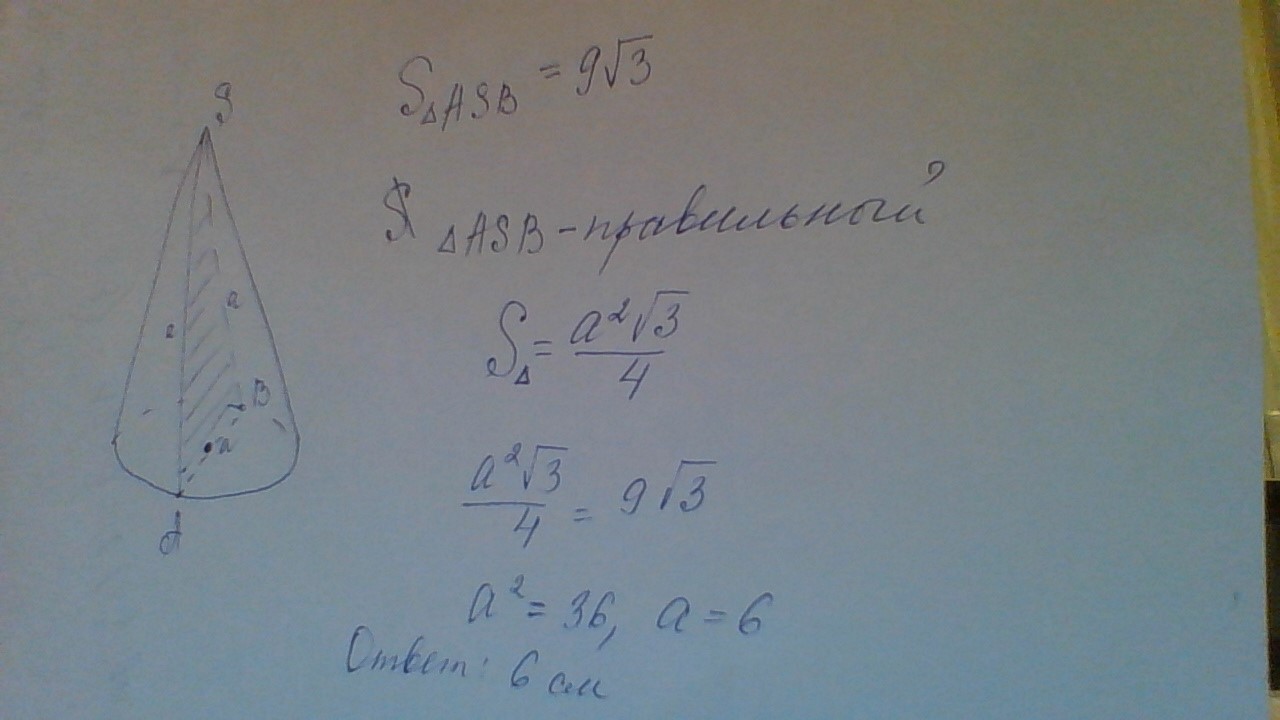 S
S△ASB = 9√3
△ASB - правильный
a
a
S△ = a²√3/4
B
a
a²√3/4 = 9√3
A
a² = 36, a = 6
Ответ: 6 см